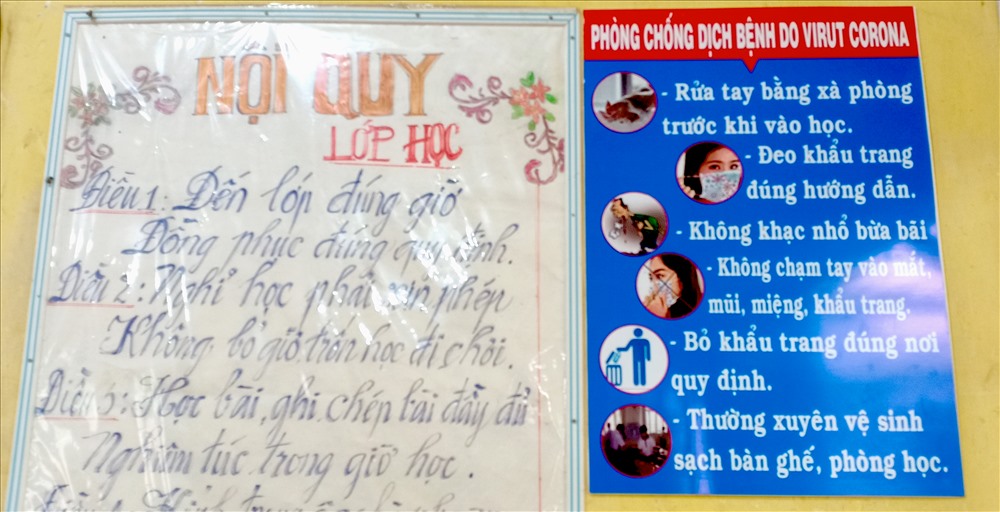 NỘI QUY
LỚP HỌC
Điều 1: Đến lớp đúng giờ
Đồng phục đúng quy định.
Điều 2: Nghỉ học phải xin phép
Không bỏ giờ trốn học đi chơi.
Điều 3: Học bài, ghi chép bài đầy đủ
Nghiêm túc trong giờ học.
PHÒNG CHỐNG DỊCH BỆNH DO VIRUT CORONA
- Rửa tay bằng xà phòng
trước khi vào học.
- Đeo khẩu trang
đúng hướng dẫn.
- Không khạc nhổ bừa bãi
- Không chạm tay vào mắt,
mũi, miệng, khẩu trang.
- Bỏ khẩu trang đúng nơi
quy định.
- Thường xuyên vệ sinh
sạch bàn ghế, phòng học.